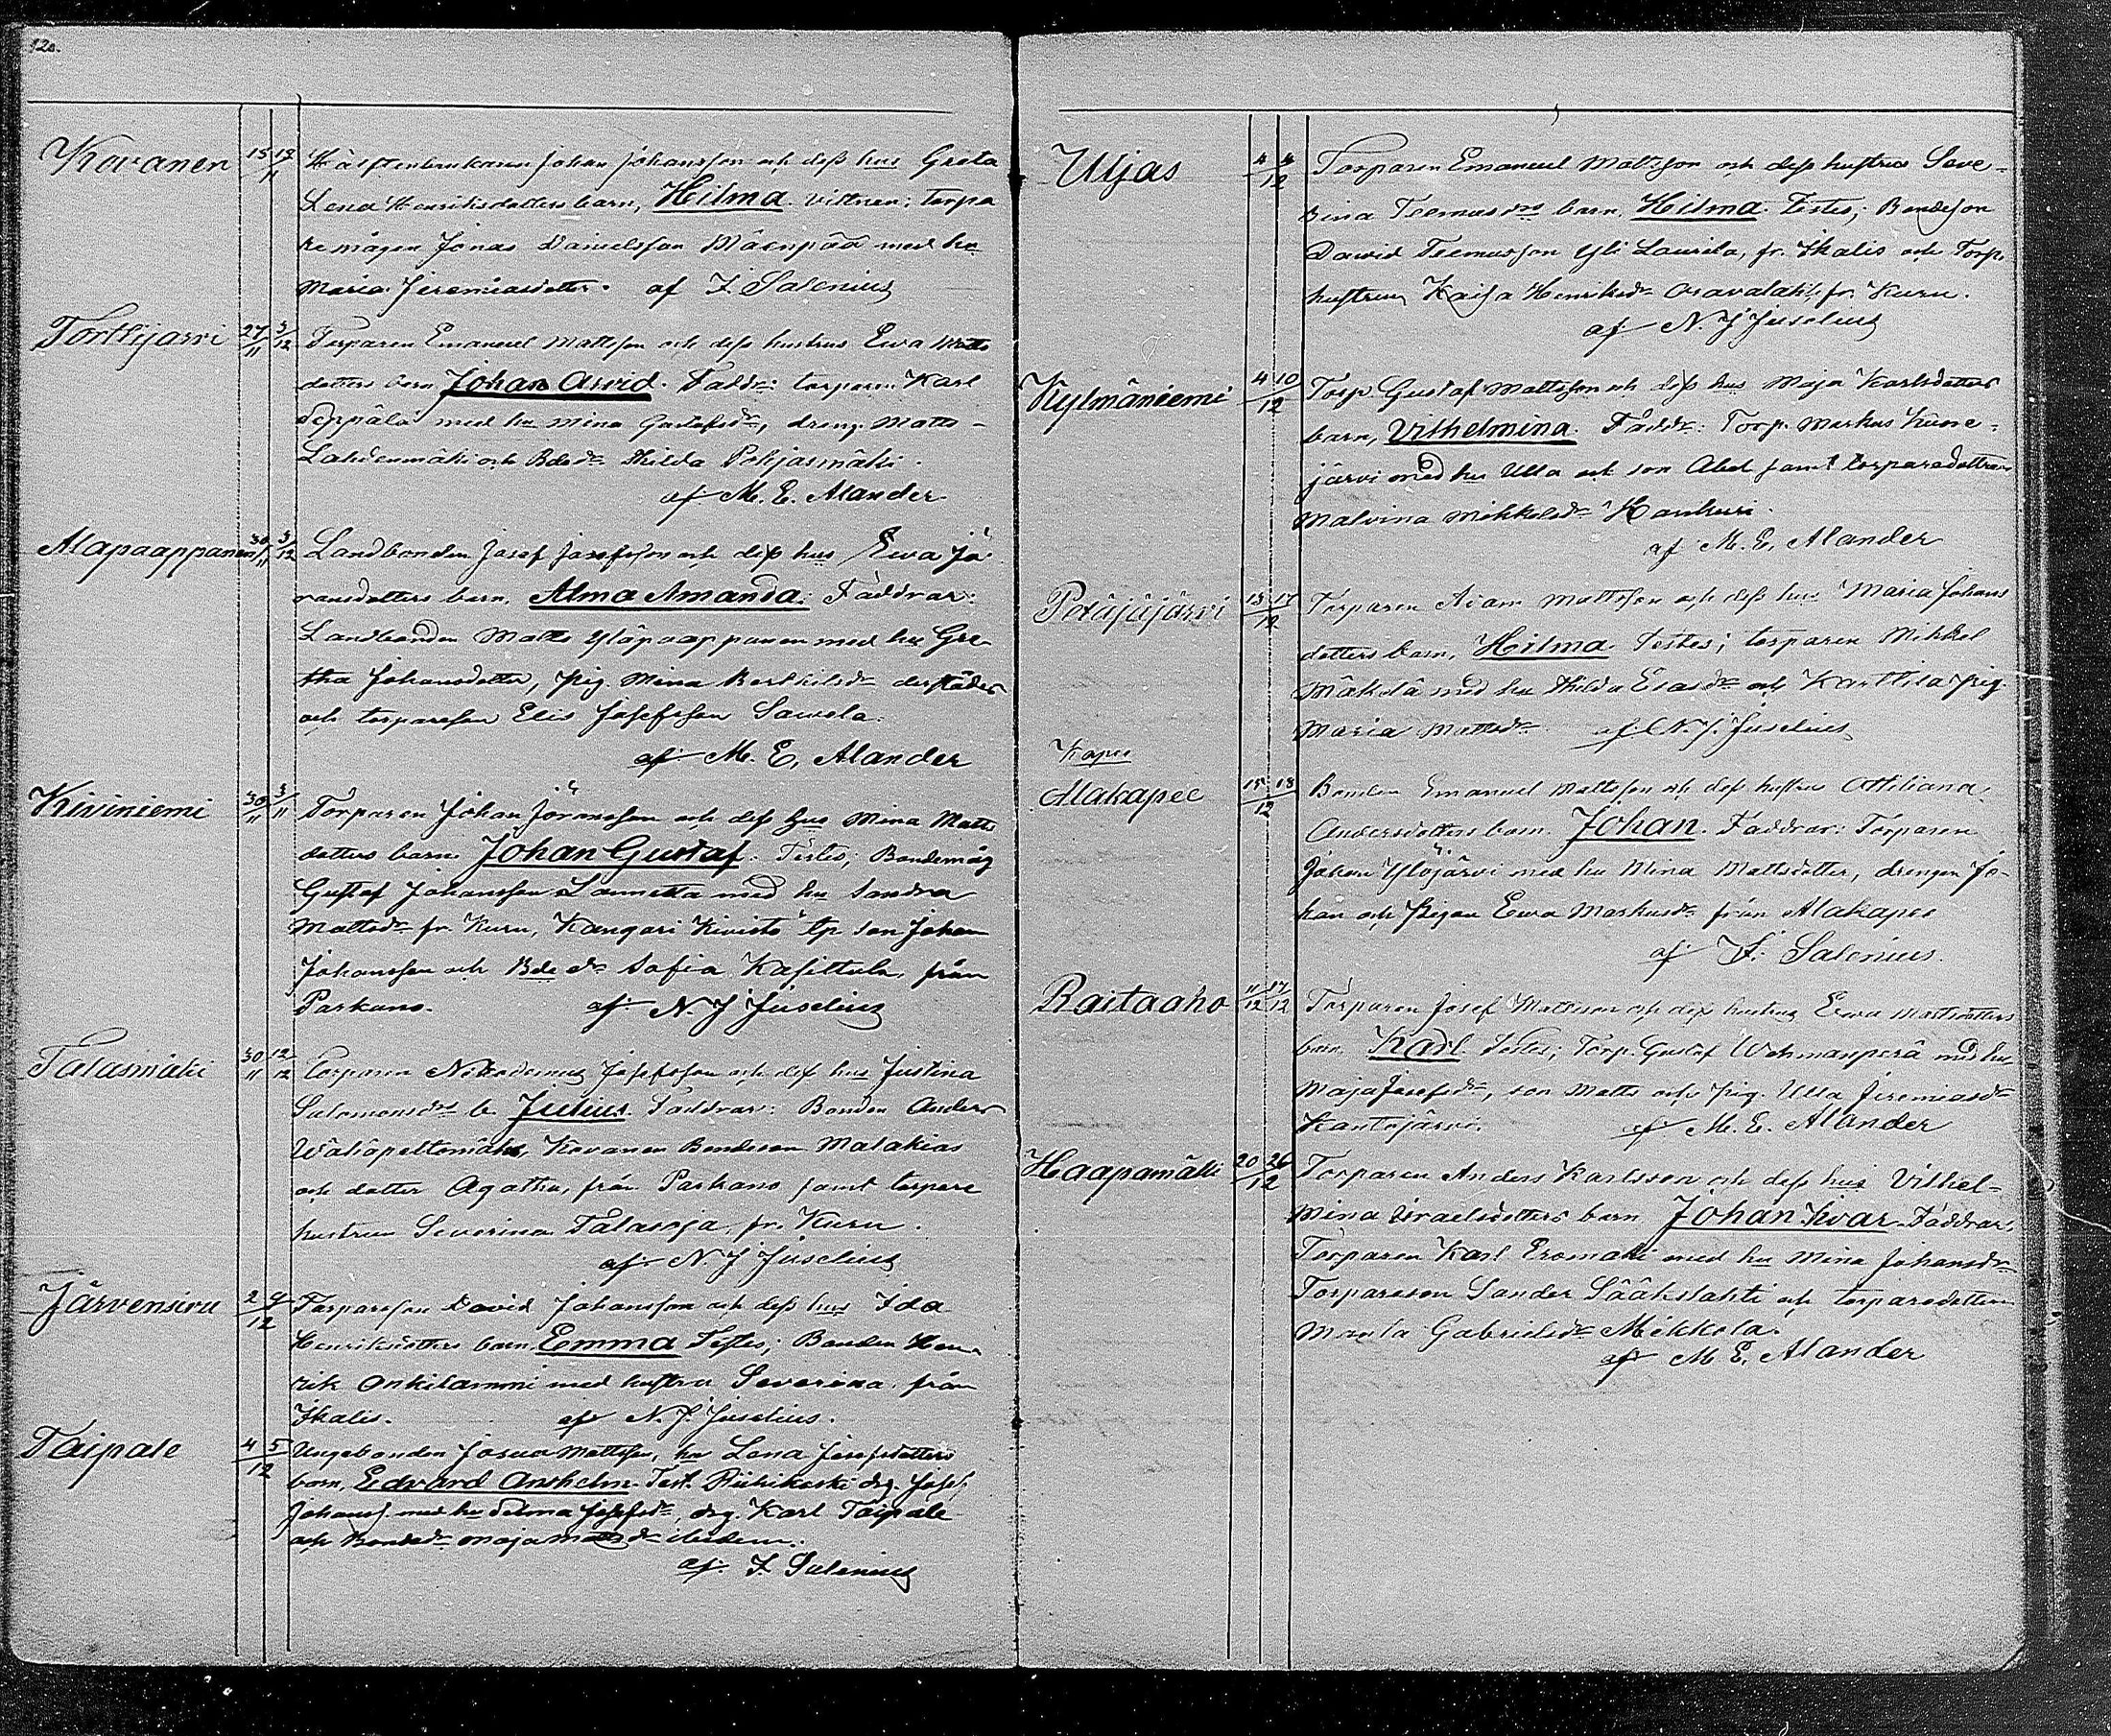 120.
Kovanen 15 17/11 Hälftenbrukaren Johan Johansson och dess hus Greta
Lena Henriksdotters barn, Hilma. vittnen: torpa
remågen Jonas Danielsson Mäenpää med hu
Maria Jeremiasdotter. af F. Salenius
Torttijarvi 27/11 3/12 Torparen Emanuel Mattsson och dess hustrus Ewa Matts
dotters barn Johan Arvid. Faddr: torparen Karl
Seppälä med hu Mina Gustafsdr, dreng. Matts
Lahdenmäki och Bdedr Hilda Pohjasmäki.
af M. E. Alander
Alapaappanen 30/11 3/12 Landbonden Josef Josefsson och dess hus Ewa Jö
ransdotters barn, Alma Amanda. Faddrar:
Landbonden Matts Yläpaappanen med hu Gre
tha Johansdotter, pig. Mina Berthilsdr derstädes
och torpareson Elis Josefsson Sawola.
af M. E. Alander
Kiviniemi 30/11 3/11 Torparen Johan Jöransson och dess hus Mina Matts
dotters barn Johan Gustaf. Testes; Bondemåg
Gustaf Johansson Lannetta med hu Sandra
Mattsdr fr. Kuru, Kangari Kivistö tp son Johan
Johansson och Bde dr Sofia Kasittula, från
Parkano. af N. J Juselius
Talasmäki 30/11 12/12 Torparen Nikodemus Josefsson och dess hus Justina
Salomonsdrs b. Julius. Faddrar: Bonden Anders
Wähäpeltomäki, Kovanen Bondeson Malakias
och dotter Agatha, från Parkano samt torpare
hustrun Severina Talasoja, fr. Kuru.
af N. J Juselius
Järvensivu 2 9/12 Torpareson David Johansson och dess hus Ida
Henriksdotters barn Emma Testes; Bonden Hen
rik Onkilammi med hustru Severina, från
Ikalis. af N. J. Juselius.
Taipale 4 5/12 Ungebonden Josua Mattsson, hu Lena Josefsdotters
barn, Edvard Anshelm. Test. Riihikoski drg. Josef
Johanss. med hu Selma Josefsdr, drg. Karl Taipale
och Bondedr Maja Mattsdr ibidem.
af. F. Salenius
Uljas 4 4/12 Torparen Emanuel Mattsson och dess hustrus Seve-
rina Teemusdrs barn, Hilma. Testes; Bondeson
Dawid Teemusson Yli Laurila, fr. Ikalis och Torp.
hustrun Kaisa Henriksdr Oravalahti, fr. Kuru.
af N. J Juselius
Kylmäniemi 4 10/12 Torp. Gustaf Mattsson och dess hus Maja Karlsdotters
barn, Vilhelmina. Faddr: Torp. Markus Kuive-
järvi med hu Ulla och son Abel samt torparedottren
Malvina Mikkelsdr Hankuri.
af M. E, Alander
Petäjäjärvi 13 17/12 Torparen Adam Mattsson och dess hus Maria Johans
dotters barn, Hilma. Testes; torparen Mikkel
Mäkelä med hu Hilda Esasdr och Karttila pig.
Maria Mattsdr af N. J. Juselius
Kapee
Alakapee 15 18/12 Bonden Emanuel Mattsson och dess hustrus Ottiliana
Andersdotters barn Johan. Faddrar: Torparen
Johan Ylöjärvi med hu Mina Mattsdotter, drengen Jo-
han och Pigan Ewa Markusdr från Alakapee
af F. Salenius.
Raitaaho 11/12 17/12 Torparen Josef Mattsson och dess hustrus Ewa Mattsdotters
barn Karl. Testes; Torp. Gustaf Wehmanperä med hu
Maja Josefsdr, son Matts och pig. Ulla Jeremiasdr
Kantojärvi. af M. E. Alander
Haapamäki 20 26/12 Torparen Anders Karlsson och dess hus Vilhel-
mina Israelsdotters barn Johan Ivar. Faddrar,
Torparen Karl Eromäki med hu Mina Johansdr
Torpareson Sander Sääkslahti och torparedottren
Maria Gabrielsdr Mikkola.
af M E. Alander